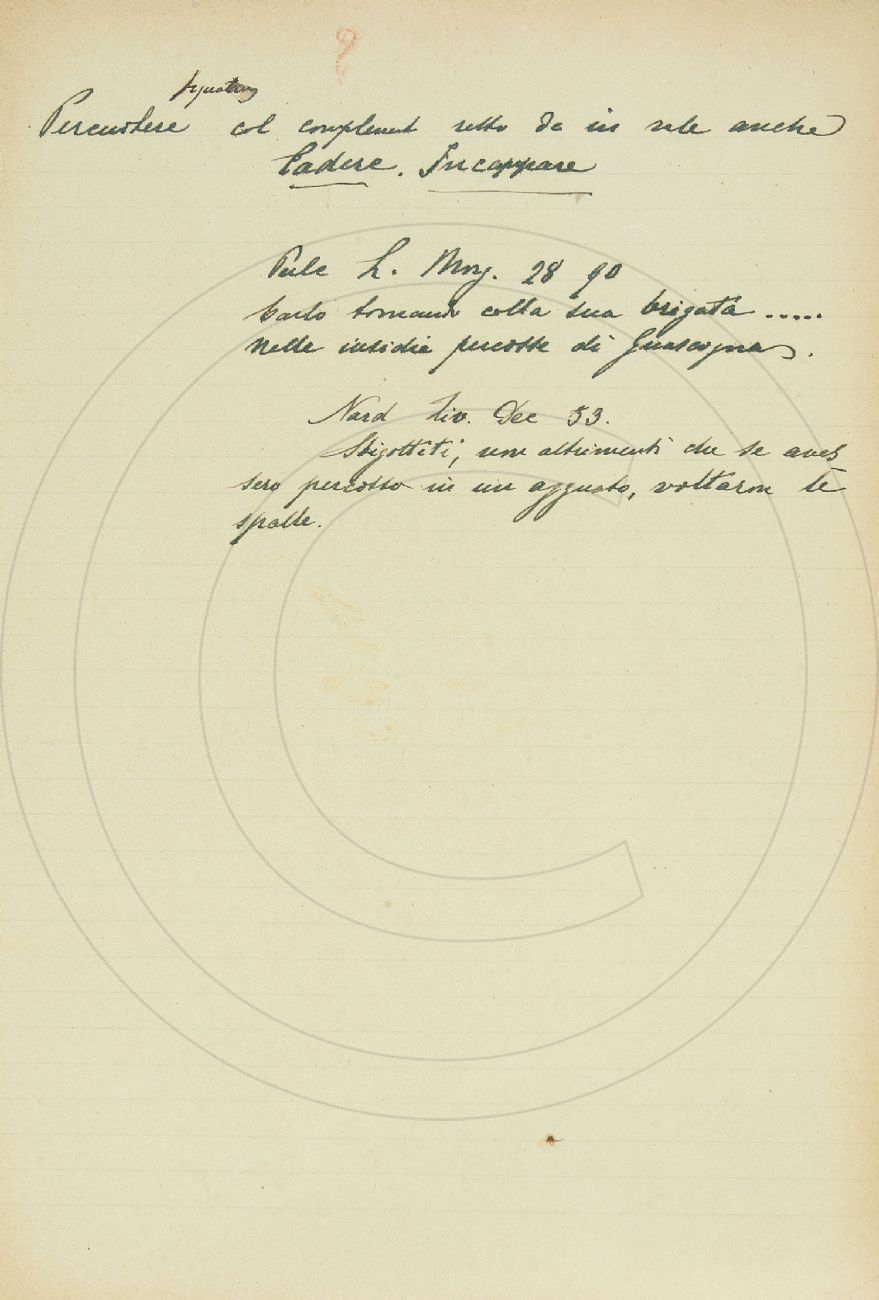 figuratam
Percuotere col complement retto da in vale anche
Cadere. Incappare
Pulc L. Morg. 28 90
Carlo tornando colla sua brigata .....
Nelle insidie percosse di Guascogna.
Nard Liv. Dec 53.
Sbigottiti, non altrimenti che se aves
sero percosso in un agguato, voltaron le
spalle.